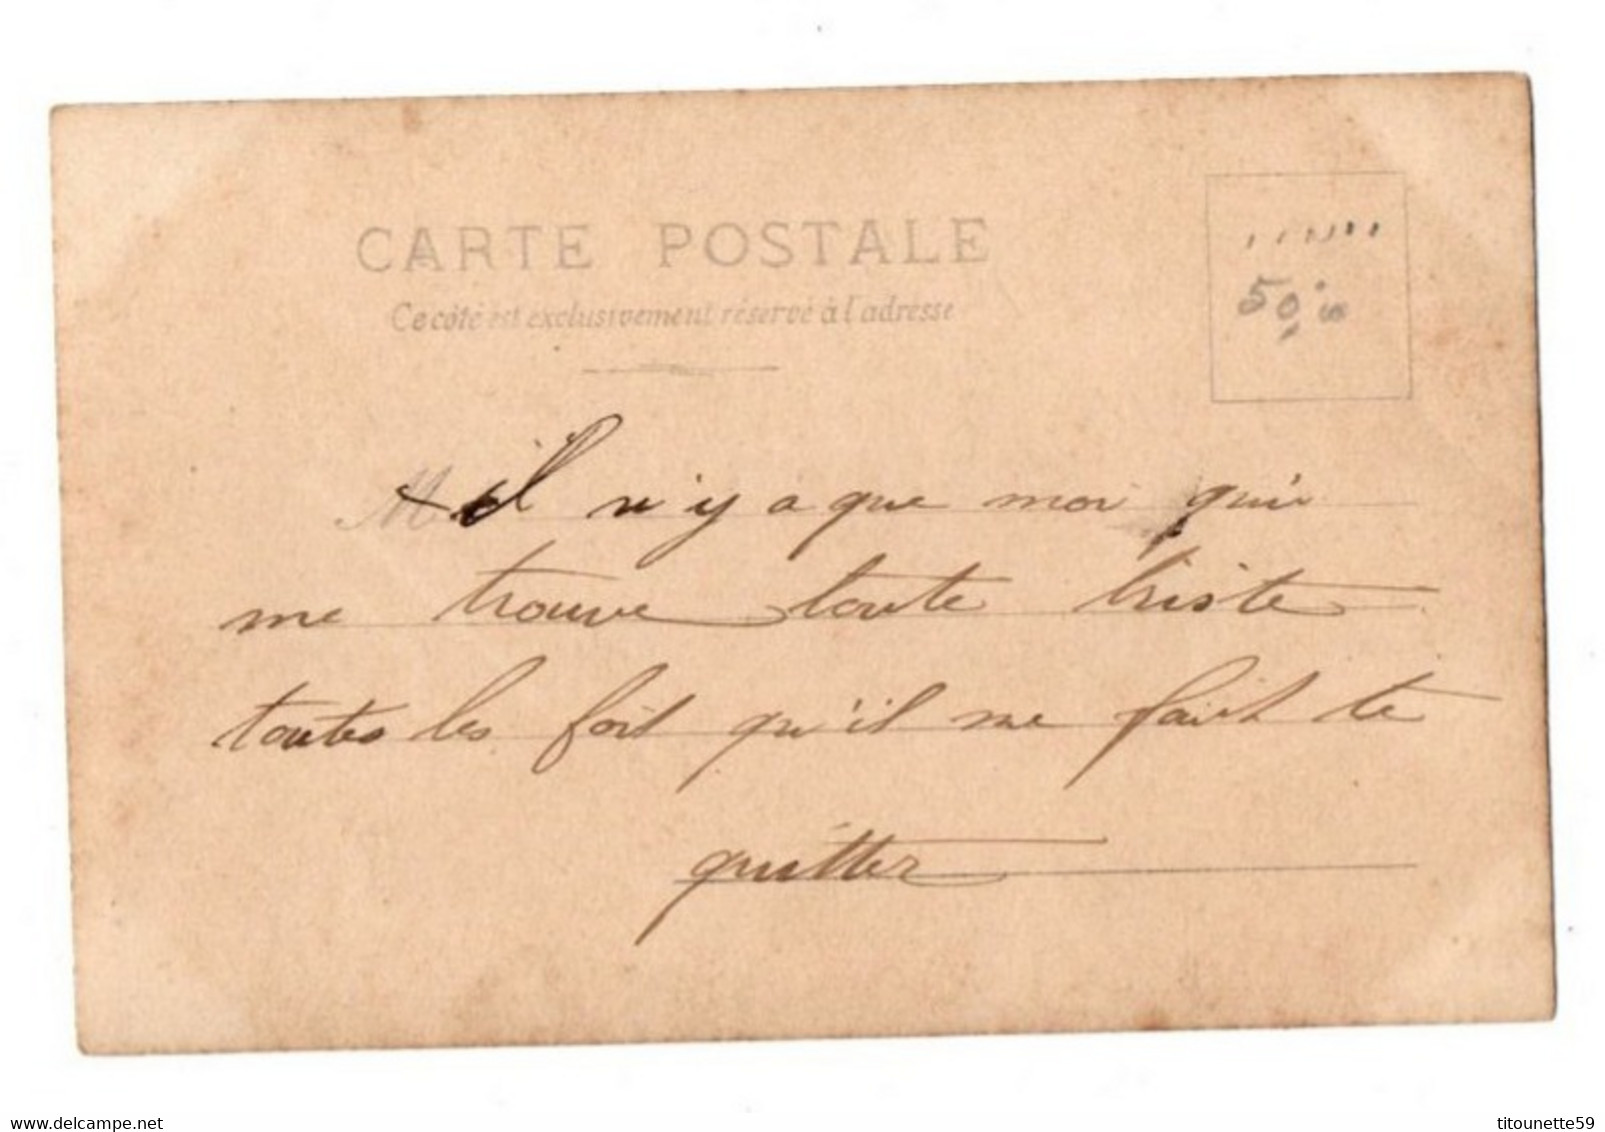 CARTE POSTALE
Ce côté est exclusivement réservé à l'adresse
50
M il n'y a que moi qui
me trouve toute triste
toutes les foit qu'il me fait te
quitter
www.delcampe.net
titounette59